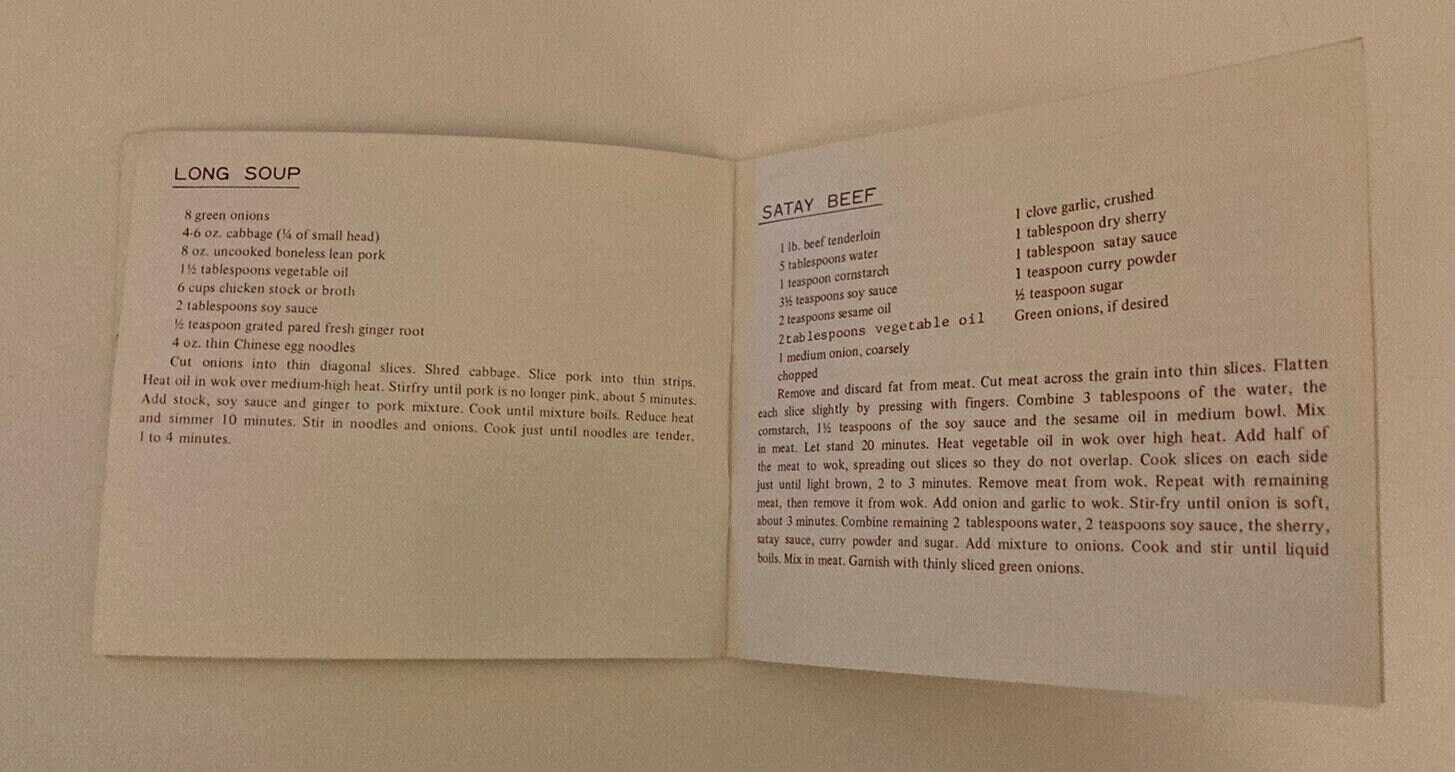 LONG SOUP
8 green onions
4-6 oz. cabbage (¼ of small head)
8 oz. uncooked boneless lean pork
1½ tablespoons vegetable oil
6 cups chicken stock or broth
2 tablespoons soy sauce
½ teaspoon grated pared fresh ginger root
4 oz. thin Chinese egg noodles
Cut onions into thin diagonal slices. Shred cabbage. Slice pork into thin strips.
Heat oil in wok over medium-high heat. Stirfry until pork is no longer pink, about 5 minutes.
Add stock, soy sauce and ginger to pork mixture. Cook until mixture boils. Reduce heat
and simmer 10 minutes. Stir in noodles and onions. Cook just until noodles are tender,
1 to 4 minutes.
SATAY BEEF
1 lb. beef tenderloin
5 tablespoons water
1 teaspoon cornstarch
3½ teaspoons soy sauce
2 teaspoons sesame oil
2tablespoons vegetable oil
1 medium onion, coarsely
chopped
1 clove garlic, crushed
1 tablespoon dry sherry
1 tablespoon satay sauce
1 teaspoon curry powder
½ teaspoon sugar
Green onions, if desired
Remove and discard fat from meat. Cut meat across the grain into thin slices. Flatten
each slice slightly by pressing with fingers. Combine 3 tablespoons of the water, the
cornstarch, 1½ teaspoons of the soy sauce and the sesame oil in medium bowl. Mix
in meat. Let stand 20 minutes. Heat vegetable oil in wok over high heat. Add half of
the meat to wok, spreading out slices so they do not overlap. Cook slices on each side
just until light brown, 2 to 3 minutes. Remove meat from wok. Repeat with remaining
meat, then remove it from wok. Add onion and garlic to wok. Stir-fry until onion is soft,
about 3 minutes. Combine remaining 2 tablespoons water, 2 teaspoons soy sauce, the sherry,
satay sauce, curry powder and sugar. Add mixture to onions. Cook and stir until liquid
boils. Mix in meat. Garnish with thinly sliced green onions.